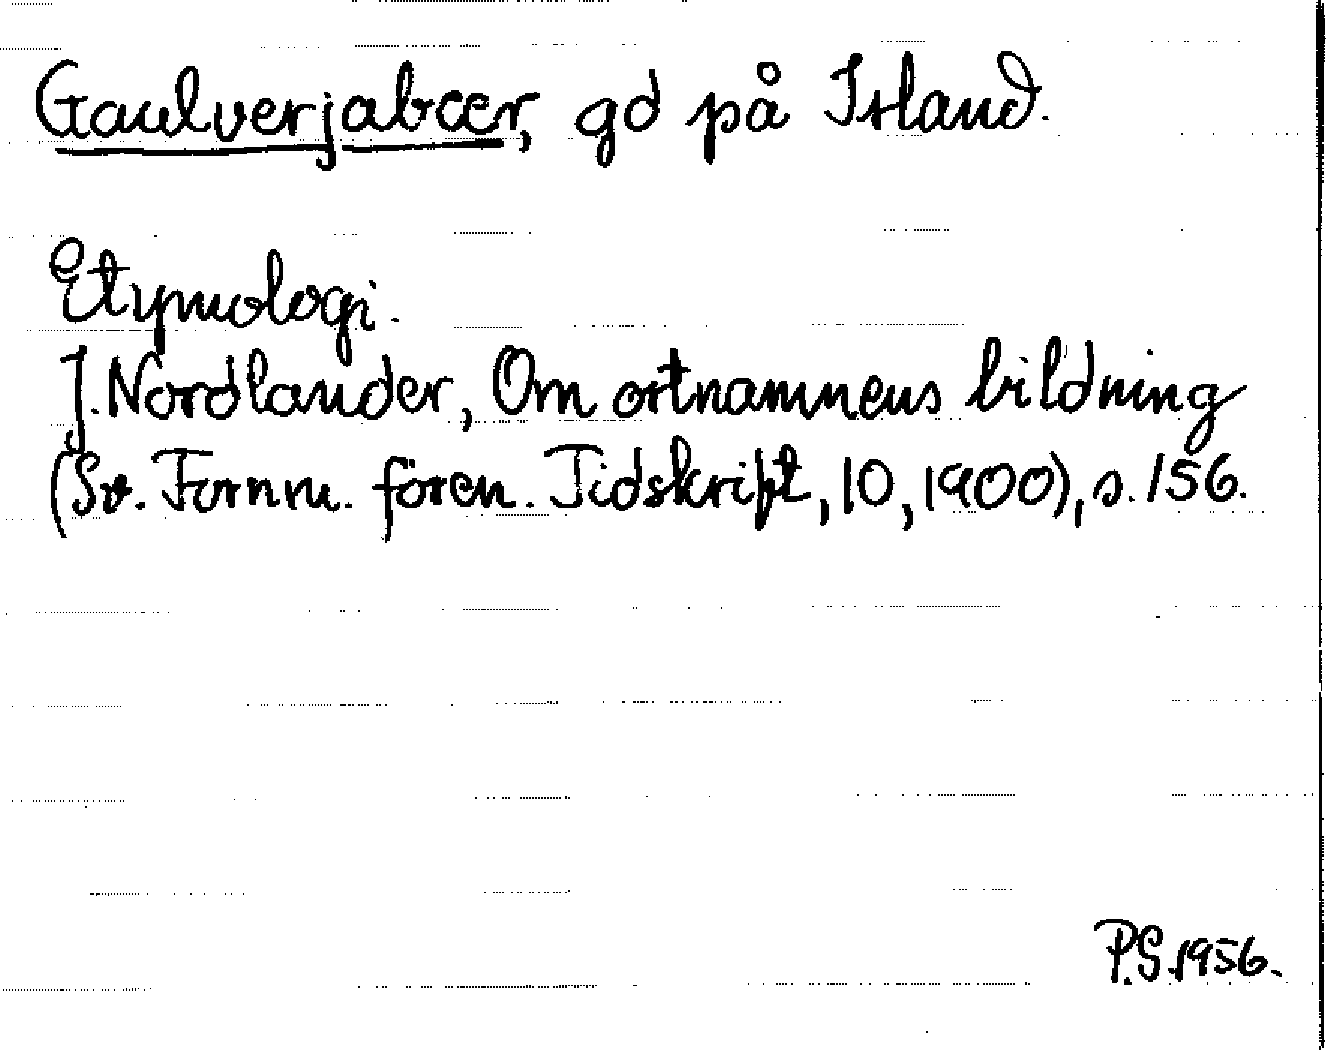 Gaulverjabær, gd på Island.
Etymologi.
J. Nordlander, Om ortnamnens bildning
(Sv. Fornm. fören. Tidskrift, 10, 1900), s. 156.
P.S. 1956.